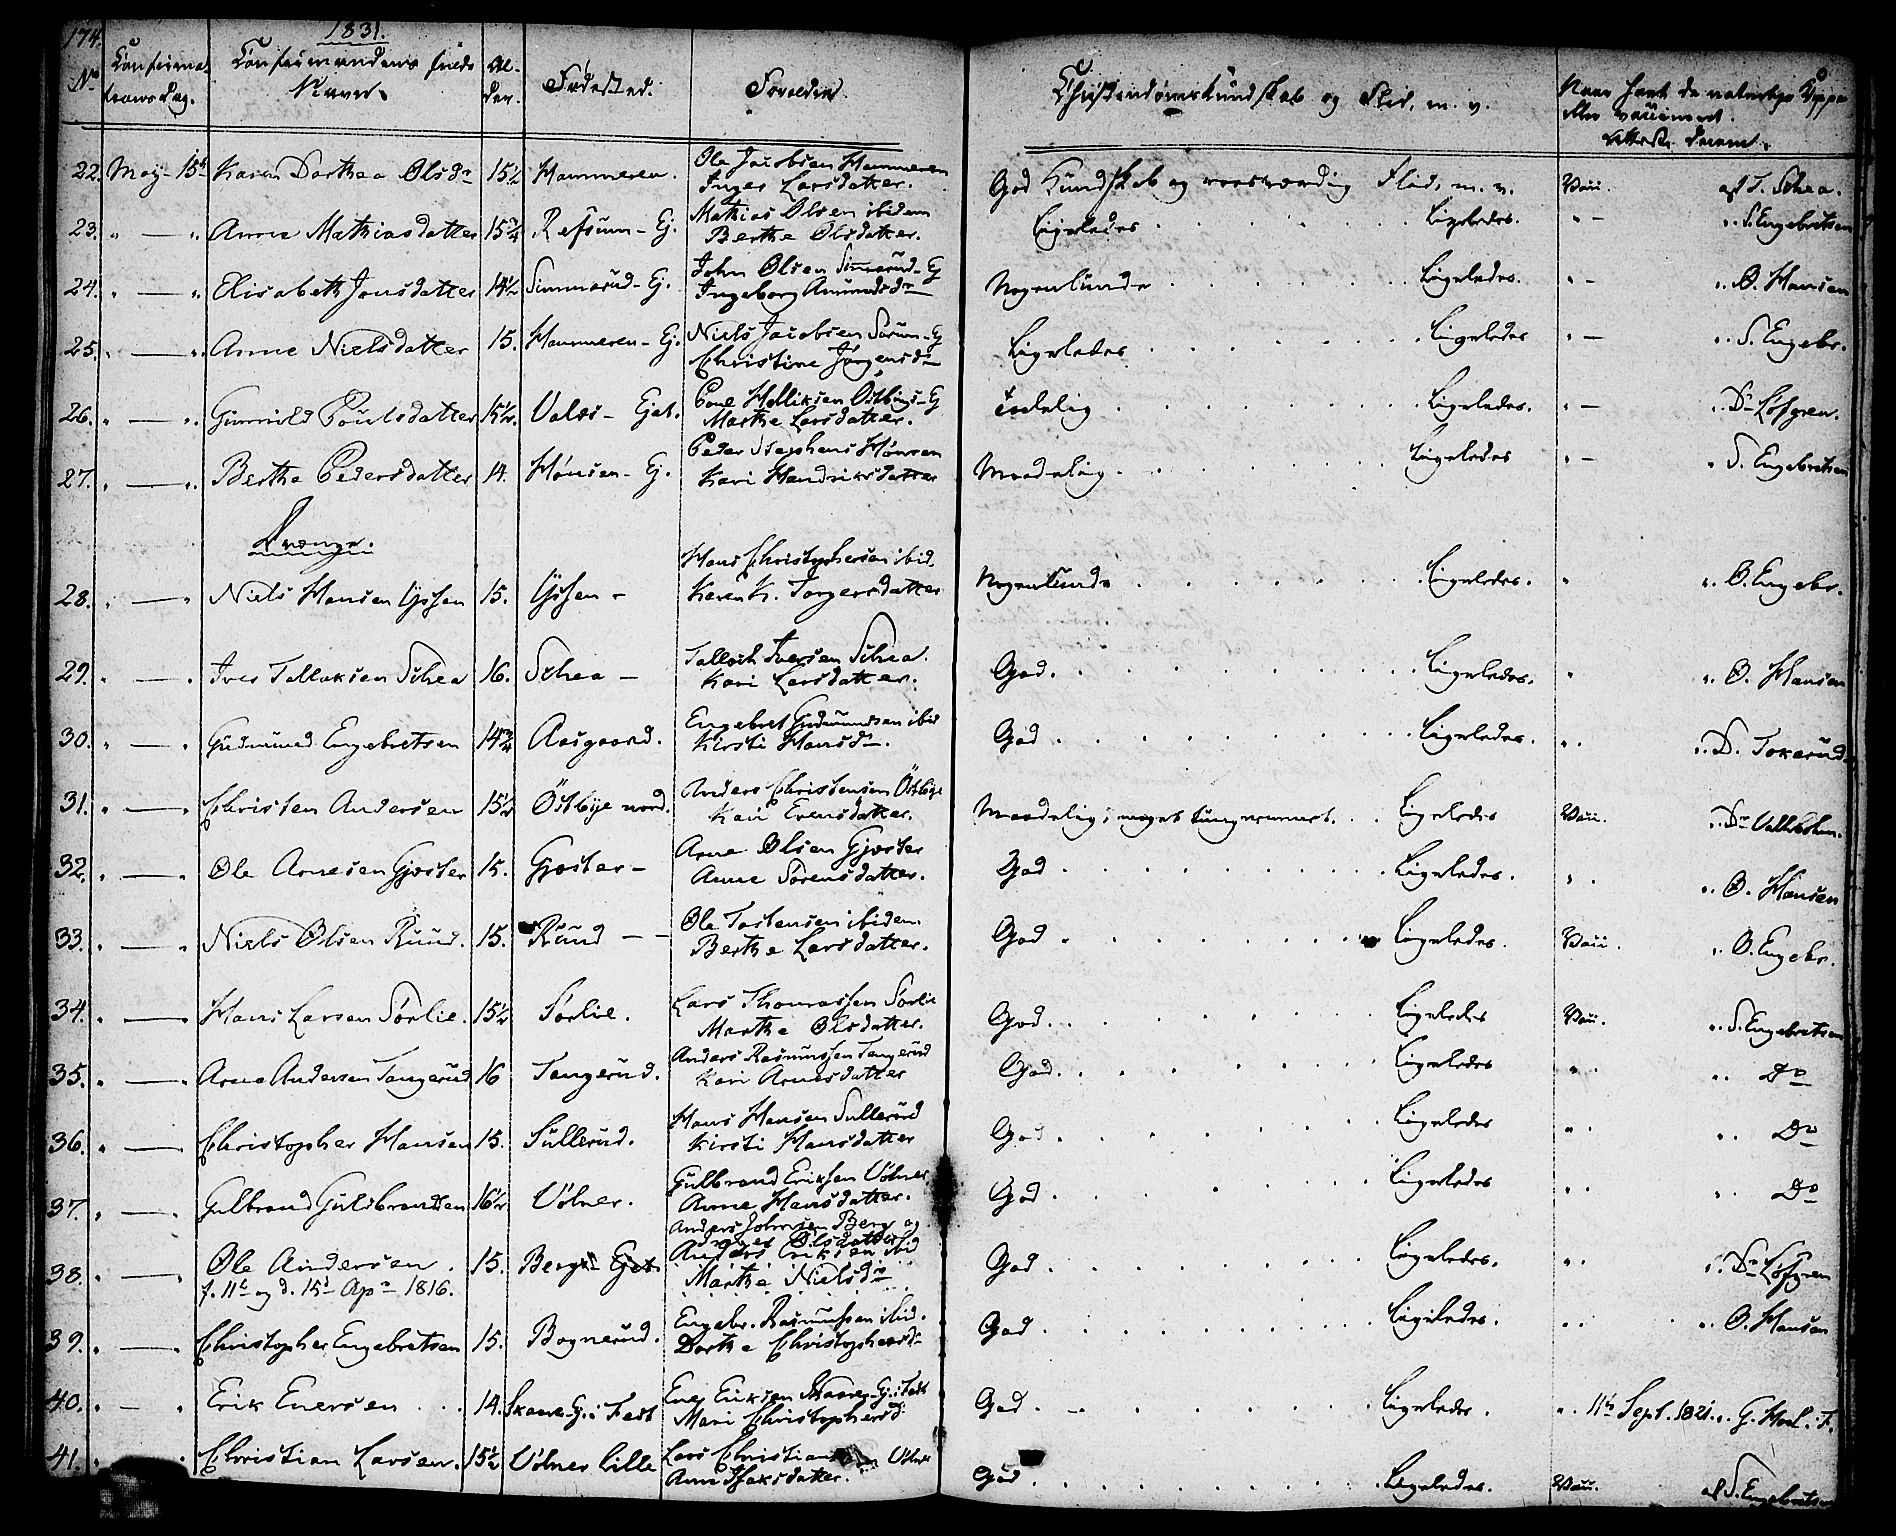 174.
1831.
No Confirma-
tions Dag.
Confirmandens fulde
Navn.
Al-
der.
Fødested.
Forældre.
Christendomskundskab og Flid, m. v.
Naar havt de naturlige Kopper
eller vaccineret.
Attest derom.
22. May 15d Karen Dorthea Olsdr 15½ Hammeren. Ole Jacobsen Hammeren
Inger Larsdatter. God Kundskab og roesværdig Flid, m. v. Vacc. af T. Schea.
23. " — ". Anne Mathiasdatter 15¾ Refsum - Ej. Mathias Olsen ibidem
Berthe Olsdatter. Ligeledes Ligeledes. " — ". S. Engebretsen
24. " — " Elisabeth Jonsdatter 14½ Simmarud - Ej. John Olsen Simmarud - Ej
Ingeborg Amundsdr Nogenlunde Ligeledes. " - ". O. Hansen
25. " — ". Anne Nielsdatter 15. Hammeren - Ej. Niels Jacobsen Sørum - Ej
Christine Jørgensdr Ligeledes Ligeledes " — ". S. Engebr.
26. " — ". Gunnild Poulsdatter 15½. Valøs - Ejet. Poul Helliksen Østbye - Ej
Marthe Larsdatter. Taalelig Ligeledes. " — ". Dr Løfgren.
27. " — ". Berthe Pedersdatter 14. Hønsen - Ej. Peder Stephens Hønsen
Kari Hendriksdatter Maadelig Ligeledes " - " S. Engebretsen
Drenge.
28. " — " Niels Hansen Ijssen 15. Ijssen - Hans Christophersen ibid.
Karen K. Torgersdatter Nogenlunde Ligeledes. " ". O. Engebr.
29. " — " Iver Tollaksen Schea 16. Schea - Tolloch Iversen Schea.
Kari Larsdatter. God. Ligeledes. " ". O. Hansen
30. " — " Gudmund Engebretsen 14¾ Aasgaard. Engebret Gudmundsen ibid
Kirsti Hansdr. God Ligeledes. " . ". D. Tokerud
31. " — " Christen Andersen 15½ Östbye nord. Anders Christensen Östbye
Kari Evensdatter. Maadelig, meget tungnemmet. Ligeledes Vacc. ". Dr Vallebohm.
32. " — " Ole Arnesen Gjøster 15. Gjøster - Arne Olsen Gjøster
Anne Sørensdatter. God Ligeledes. " . ". O. Hansen
33. " — " Niels Olsen Ruud. 15. Ruud - - Ole Tostensen ibidem
Berthe Larsdatter. God Ligeledes. Vacc. ". O. Engebr.
34. " — " Hans Larsen Sørlie. 15½ Sørlie. Lars Thomassen Sørlie
Marthe Olsdatter. God. Ligeledes Vacc. ". S. Engebretsen
35. " — " Arne Andersen Tangerud 16 Tangerud. Anders Rasmussen Tangerud
Kari Arnesdatter God. Ligeledes " . ". Do
36. " — " Christopher Hansen 15. Sullerud. Hans Hansen Sullerud
Kirsti Hansdatter God. Ligeledes " . ". Do
37. " — " Gulbrand Gulbrandsen 16½ Vølner. Gulbrand Eriksen Vølner
Anne Hansdatter. God. Ligeledes " . ". Do
38. " — " Ole Andersen. 15. Berg - Ejet Anders Johnsen Berg og
Inger Olsdatter
Anders Eriksen ibid
Marthe Nielsdr
f. 11te og d. 15d Apr 1816. God Ligeledes. " . ". Dr Løfgren
39. " — " Christopher Engebretsen 15. Bognerud. Engebr. Rasmussen ibid.
Dorthe Christophersdr God Ligeledes. " . ". O. Hansen
40. " - " Erik Evensen 14. Skaare - Ej. i Fedt Even Eriksen Skaare - Ej. i Fedt
Mari Christophersd. God. Ligeledes. " . 11te Sept. 1821. ". G. Hval. i F.
41. " " Christian Larsen. 15½ Vølner Lille Lars Christiansen Vølner
Anne Isaksdatter. God Ligeledes. Vacc. af S. Engebretsen